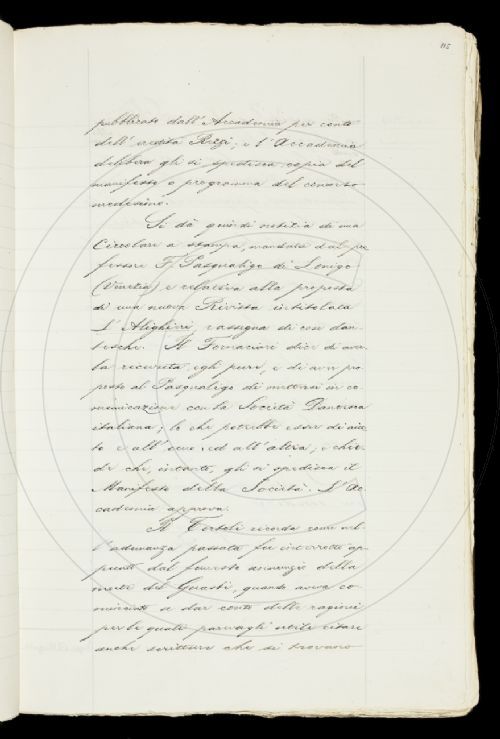 115
pubblicato dall'Accademia per conto
dell'eredità Rezzi; e l'Accademia
delibera gli si spedisca copia del
manifesto o programma del concorso
medesimo.
Si dà quindi notizia di una
Circolare a stampa, mandata dal pro
fessore F. Pasqualigo di Lonigo
(Venezia) e relativa alla proposta
di una nuova Rivista intitolata
L'Alighieri, rassegna di cose dan
tesche. Il Fornaciari dice di aver
la ricevuta egli pure, e di aver pro
posto al Pasqualigo di mettersi in co
municazione con la Società Dantesca
italiana; lo che potrebbe esser di aiu
to e all'uno ed all'altra; e chie
de che, intanto, gli si spedisca il
Manifesto della Società. L'Ac
cademia approva.
Il Tortoli ricorda come nel
l'adunanza passata fu interrotto ap
punto dal funesto annunzio della
morte del Guasti, quando aveva co
minciato a dar conto delle ragioni
per le quali parevagli utile citare
anche scritture che si trovano